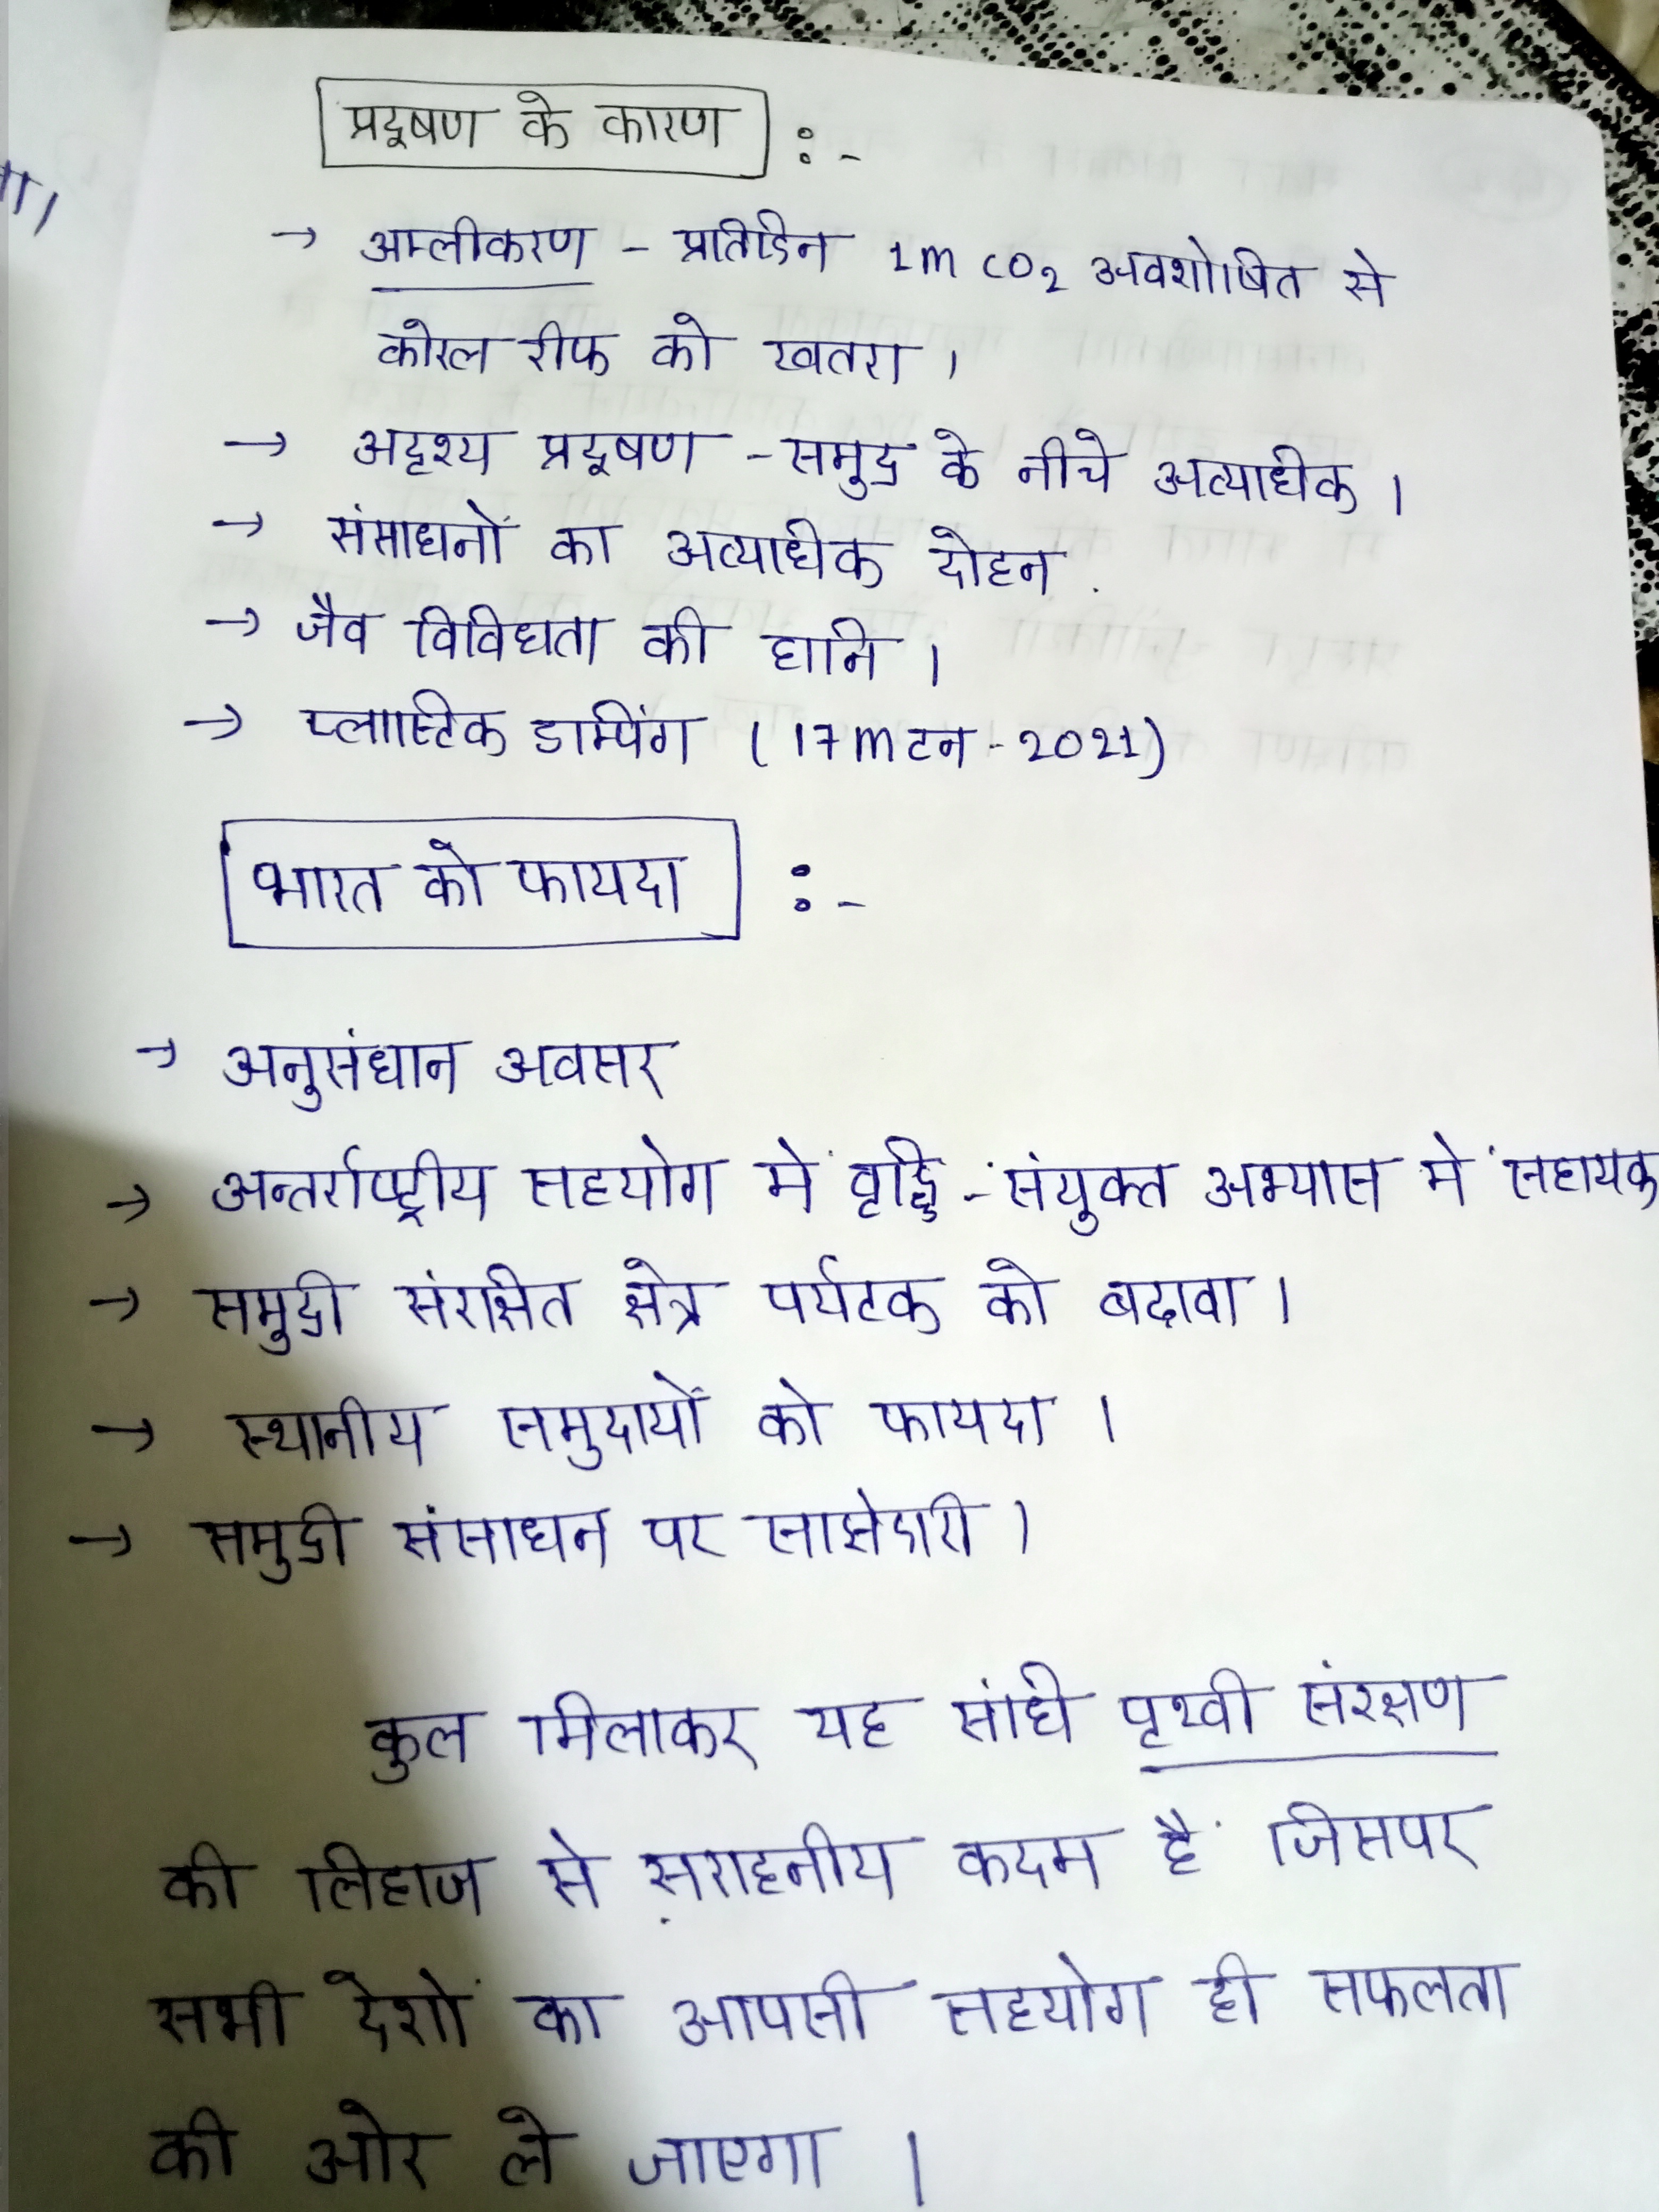 प्रदूषण के कारण :-
→ अम्लीकरण - प्रतिदिन 1m CO2 अवशोषित से
कोरल रीफ को खतरा ।
→ अदृश्य प्रदूषण - समुद्र के नीचे अत्याधिक ।
→ संसाधनों का अत्याधिक दोहन .
→ जैव विविधता की हानि ।
→ प्लास्टिक डाम्पिंग (17m टन - 2021)
भारत को फायदा :-
→ अनुसंधान अवसर
→ अन्तर्राष्ट्रीय सहयोग में वृद्धि - संयुक्त अभ्यास में सहायक
→ समुद्री संरक्षित क्षेत्र पर्यटक को बढ़ावा ।
→ स्थानीय समुदायों को फायदा ।
→ समुद्री संसाधन पर साझेदारी ।
कुल मिलाकर यह संधि पृथ्वी संरक्षण
की लिहाज से सराहनीय कदम है जिसपर
सभी देशों का आपसी सहयोग ही सफलता
की ओर ले जाएगा ।